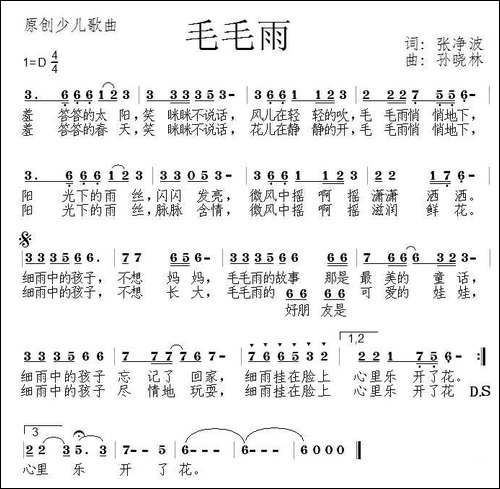 原创少儿歌曲
毛毛雨
1=D 4/4
词：张净波
曲：孙晓林
3. 6 6 6 1 2 3 | 3. 6 5 6 5 - | 6 6 6 1 1 2 3 | 2 2 2 7 5 5 - |
羞 答答的太 阳，笑 眯眯不说话， 风儿在轻 轻的吹，毛 毛雨悄 悄地下，
羞 答答的春 天，笑 眯眯不说话， 花儿在静 静的开，毛 毛雨悄 悄地下，
3. 6 6 6 1 2 3 | 3 3 0 5 3 - | 6 6 6 1 1 2 3 | 2 2 1 7 6 - |
阳 光下的雨 丝，闪闪 发亮， 微风中摇 啊 摇 潇潇 洒洒。
阳 光下的雨 丝，脉脉 含情， 微风中摇 啊 摇 滋润 鲜花。
3 3 3 5 6 6 | 7 7 6 5 6 - | 3 3 3 5 6 6 6 6 | 7 6 6 6 3 2 3 - |
细雨中的孩子， 不想 妈 妈， 毛毛雨的故事 那是 最 美的 童 话，
细雨中的孩子， 不想 长 大， 毛毛雨的 6 6 6 6 可 爱的 娃 娃，
好朋 友是
3 3 3 5 6 6 | 7 7 7 6 7 - | 7 6 6 5 3 2 | 2 2 1 7 5 6 - :|
细雨中的孩子 忘 记了 回家， 细雨挂在脸上 心里乐 开了花。
细雨中的孩子 尽 情地 玩耍， 细雨挂在脸上 心里乐 开了花 D.S
1,2
3
2 2 3 5. 3 | 7 - - 5 | 6 - - - | 6 0 0 0 ‖
心里 乐 开 了 花。